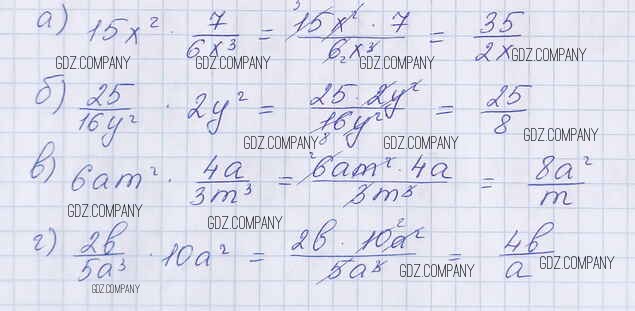 а) 15x² · 7/6x³ = 15x² · 7/6x³ = 35/2x
GDZ.COMPANY GDZ.COMPANY GDZ.COMPANY GDZ.COMPANY
б) 25/16y² · 2y² = 25 · 2y²/16y² = 25/8
GDZ.COMPANY GDZ.COMPANY GDZ.COMPANY
в) 6am² · 4a/3m³ = 6am² · 4a/3m³ = 8a²/m
GDZ.COMPANY GDZ.COMPANY
г) 2b/5a³ · 10a² = 2b · 10a²/5a³ = 4b/a
GDZ.COMPANY GDZ.COMPANY GDZ.COMPANY